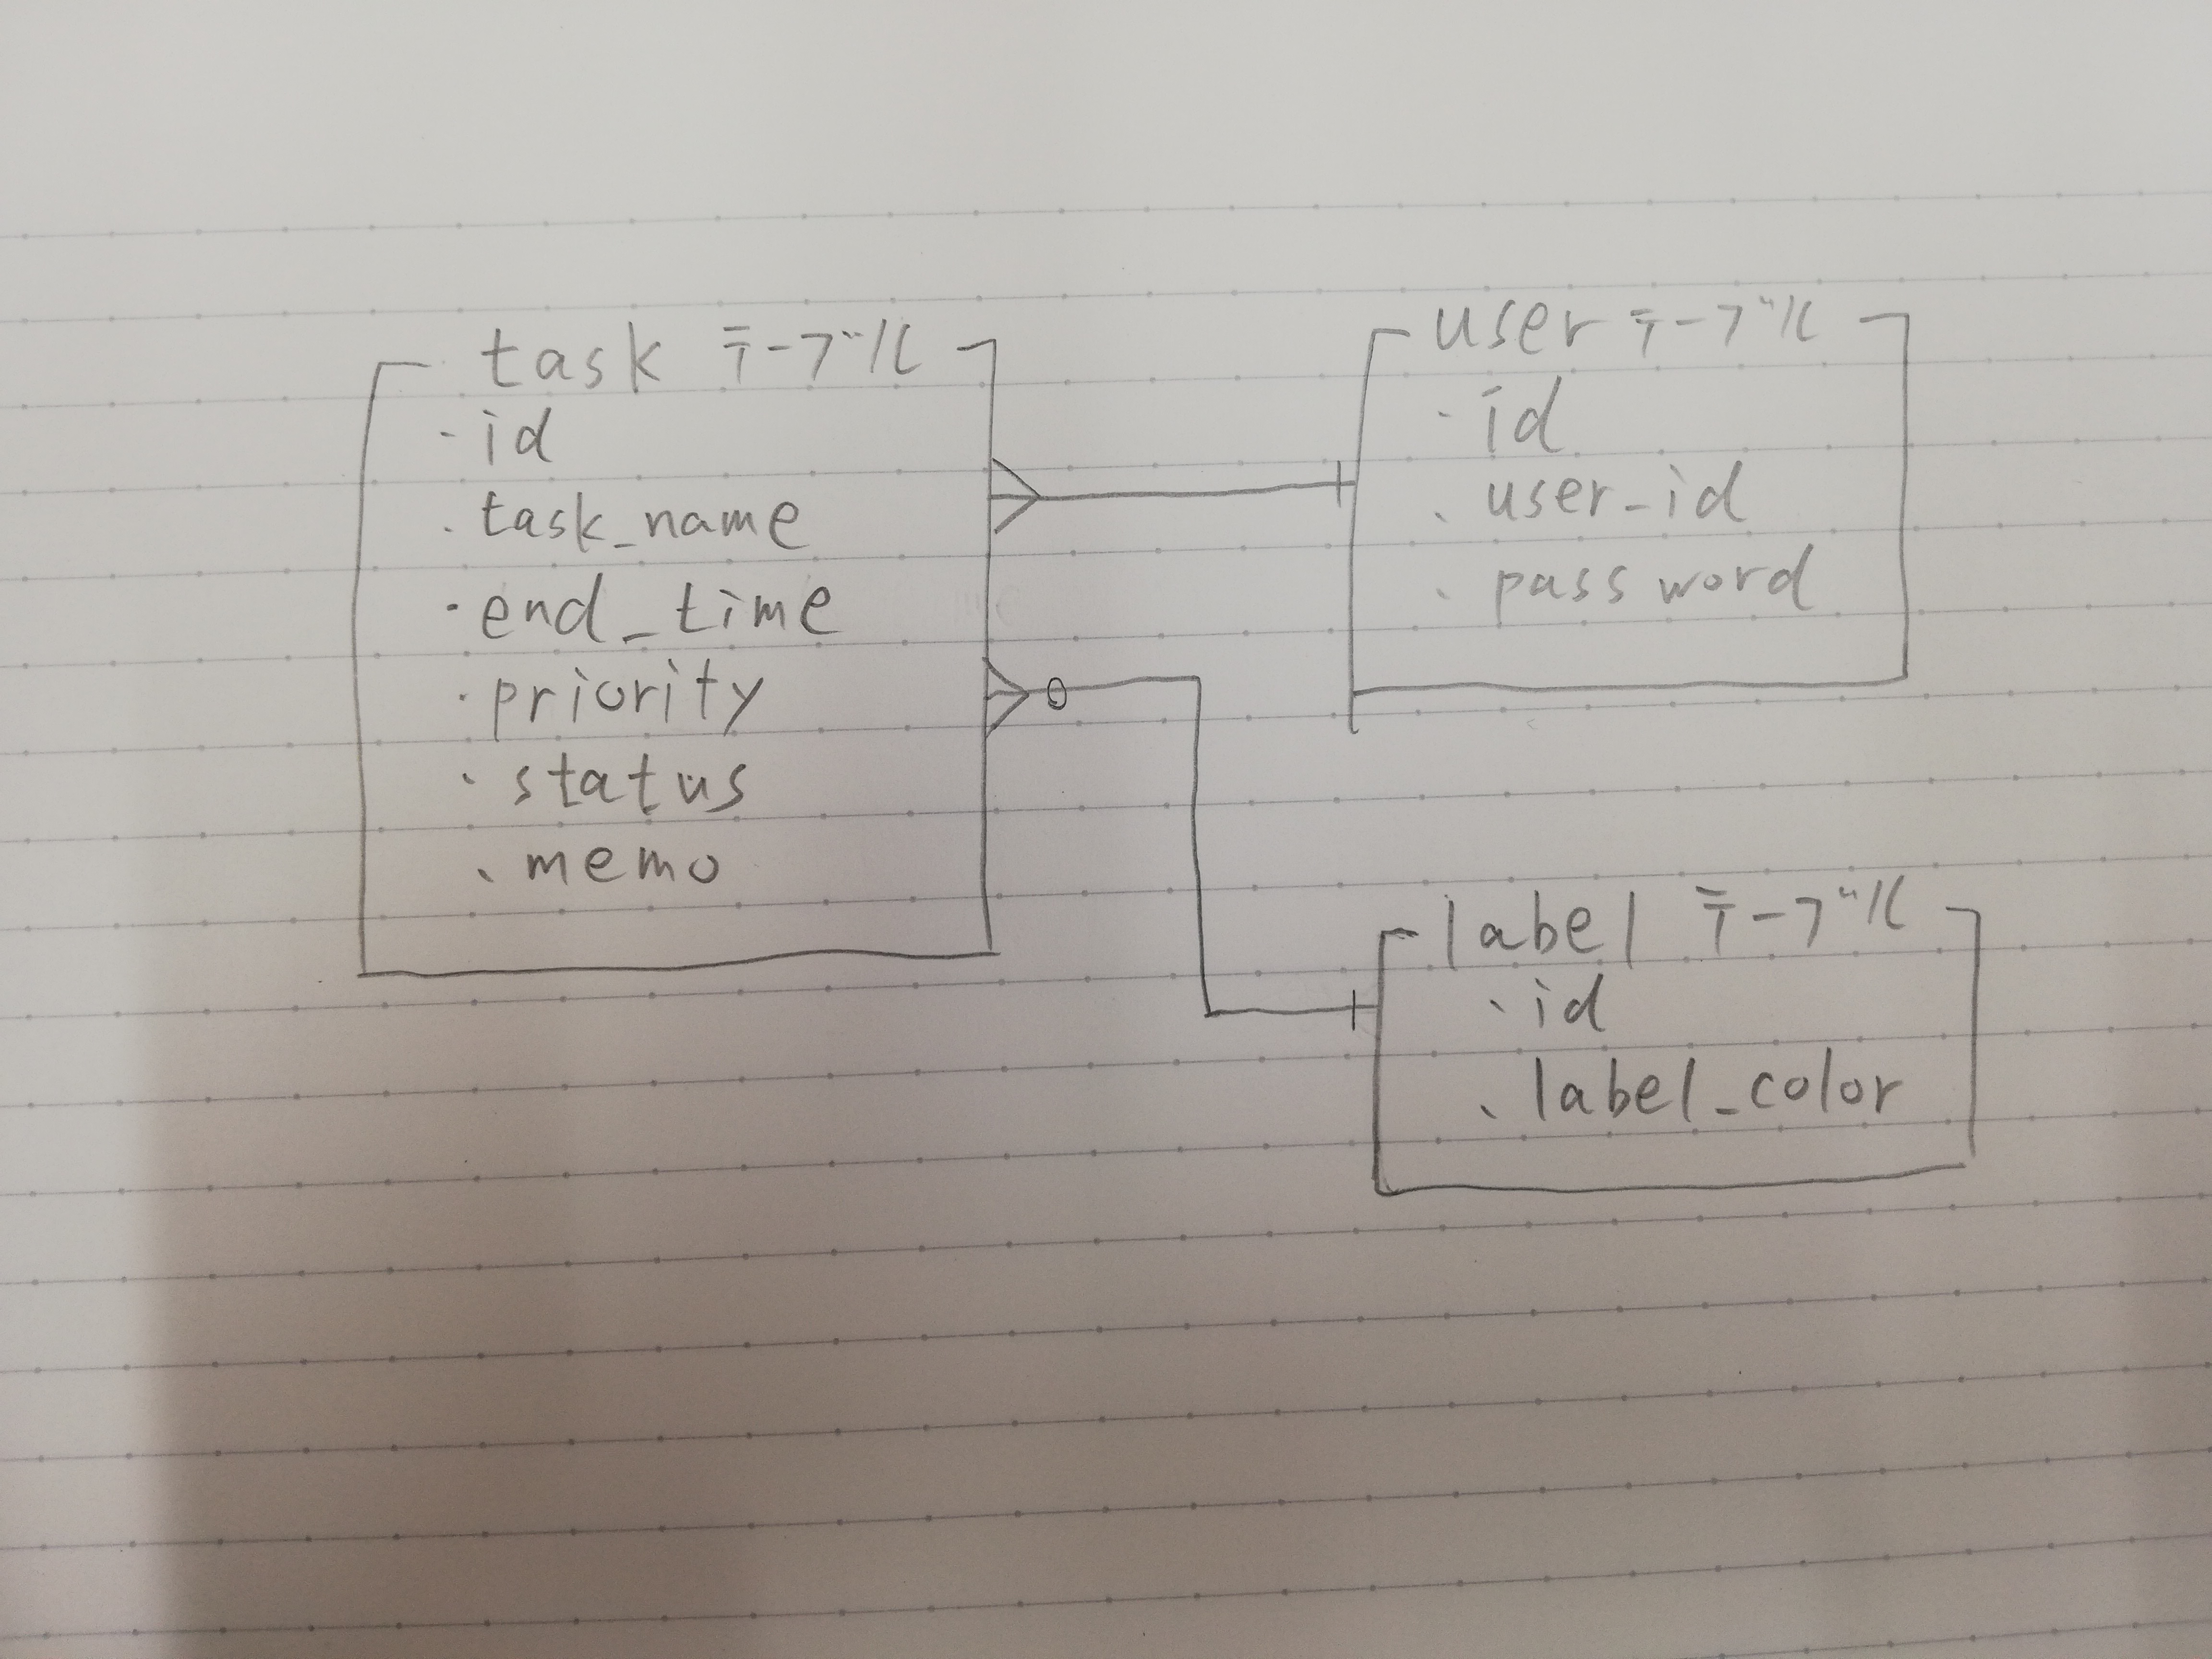 task テーブル
・id
・task_name
・end_time
・priority
・status
・memo
user テーブル
・id
・user_id
・password
label テーブル
・id
・label_color